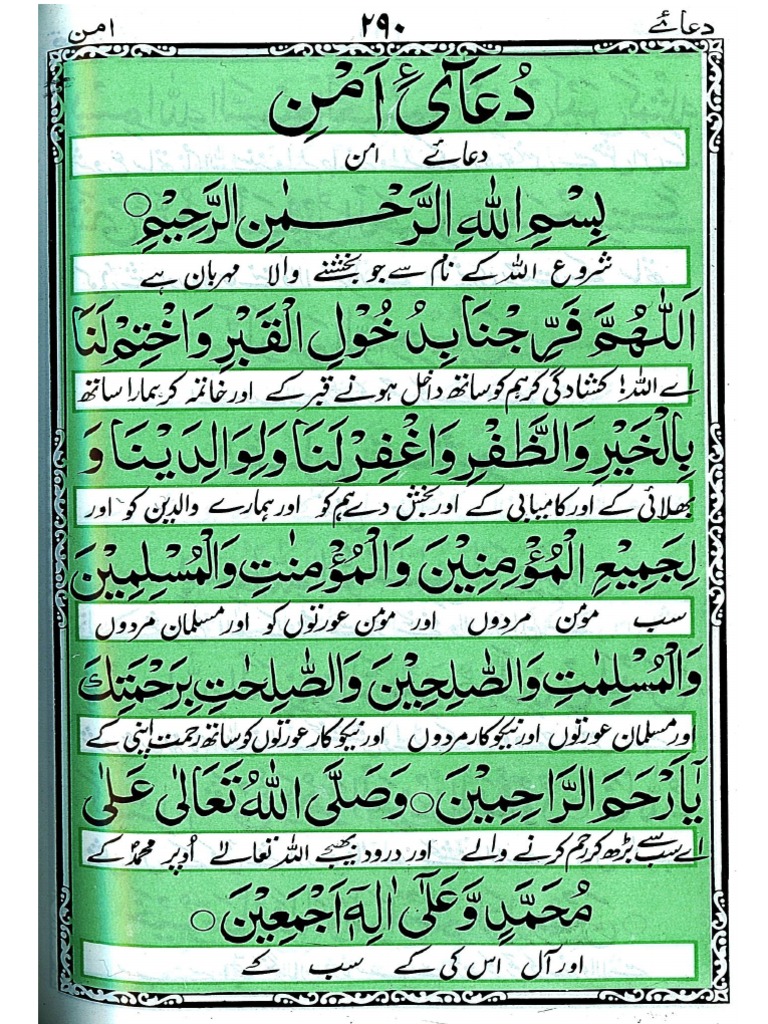 دعائے ۲۹۰ امن
دُعَآئِ اَمْنِ
دعائے امن
بِسْمِ اللهِ الرَّحْمٰنِ الرَّحِيْمِ○
شروع اللہ کے نام سے جو بخشنے والا مہربان ہے
اَللّٰهُمَّ فَرِّجْنَا بِدُخُوْلِ الْقَبْرِ وَاخْتِمْ لَنَا
اے اللہ! کشادگی کر ہم کو ساتھ داخل ہونے قبر کے اور خاتمہ کر ہمارا ساتھ
بِالْخَيْرِ وَالظَّفْرِ وَاغْفِرْ لَنَا وَلِوَالِدَيْنَا وَ
بھلائی کے اور کامیابی کے اور بخش دے ہم کو اور ہمارے والدین کو اور
لِجَمِيْعِ الْمُؤْمِنِيْنَ وَالْمُؤْمِنٰتِ وَالْمُسْلِمِيْنَ
سب مؤمن مردوں اور مؤمن عورتوں کو اور مسلمان مردوں
وَالْمُسْلِمٰتِ وَالصّٰلِحِيْنَ وَالصّٰلِحٰتِ بِرَحْمَتِكَ
اور مسلمان عورتوں اور نیکوکار مردوں اور نیکوکار عورتوں کو ساتھ رحمت اپنی کے
يَآ اَرْحَمَ الرَّاحِمِيْنَ○ وَصَلَّى اللهُ تَعَالٰى عَلٰى
اے سب سے بڑھ کر رحم کرنے والے اور درود بھیجے اللہ تعالےٰ اُوپر محمدؐ کے
مُحَمَّدٍ وَّعَلٰٓى اٰلِهٖٓ اَجْمَعِيْنَ○
اور آل اس کی کے سب کے